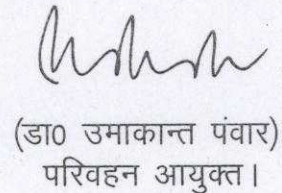 (डा0 उमाकान्त पंवार)
परिवहन आयुक्त।